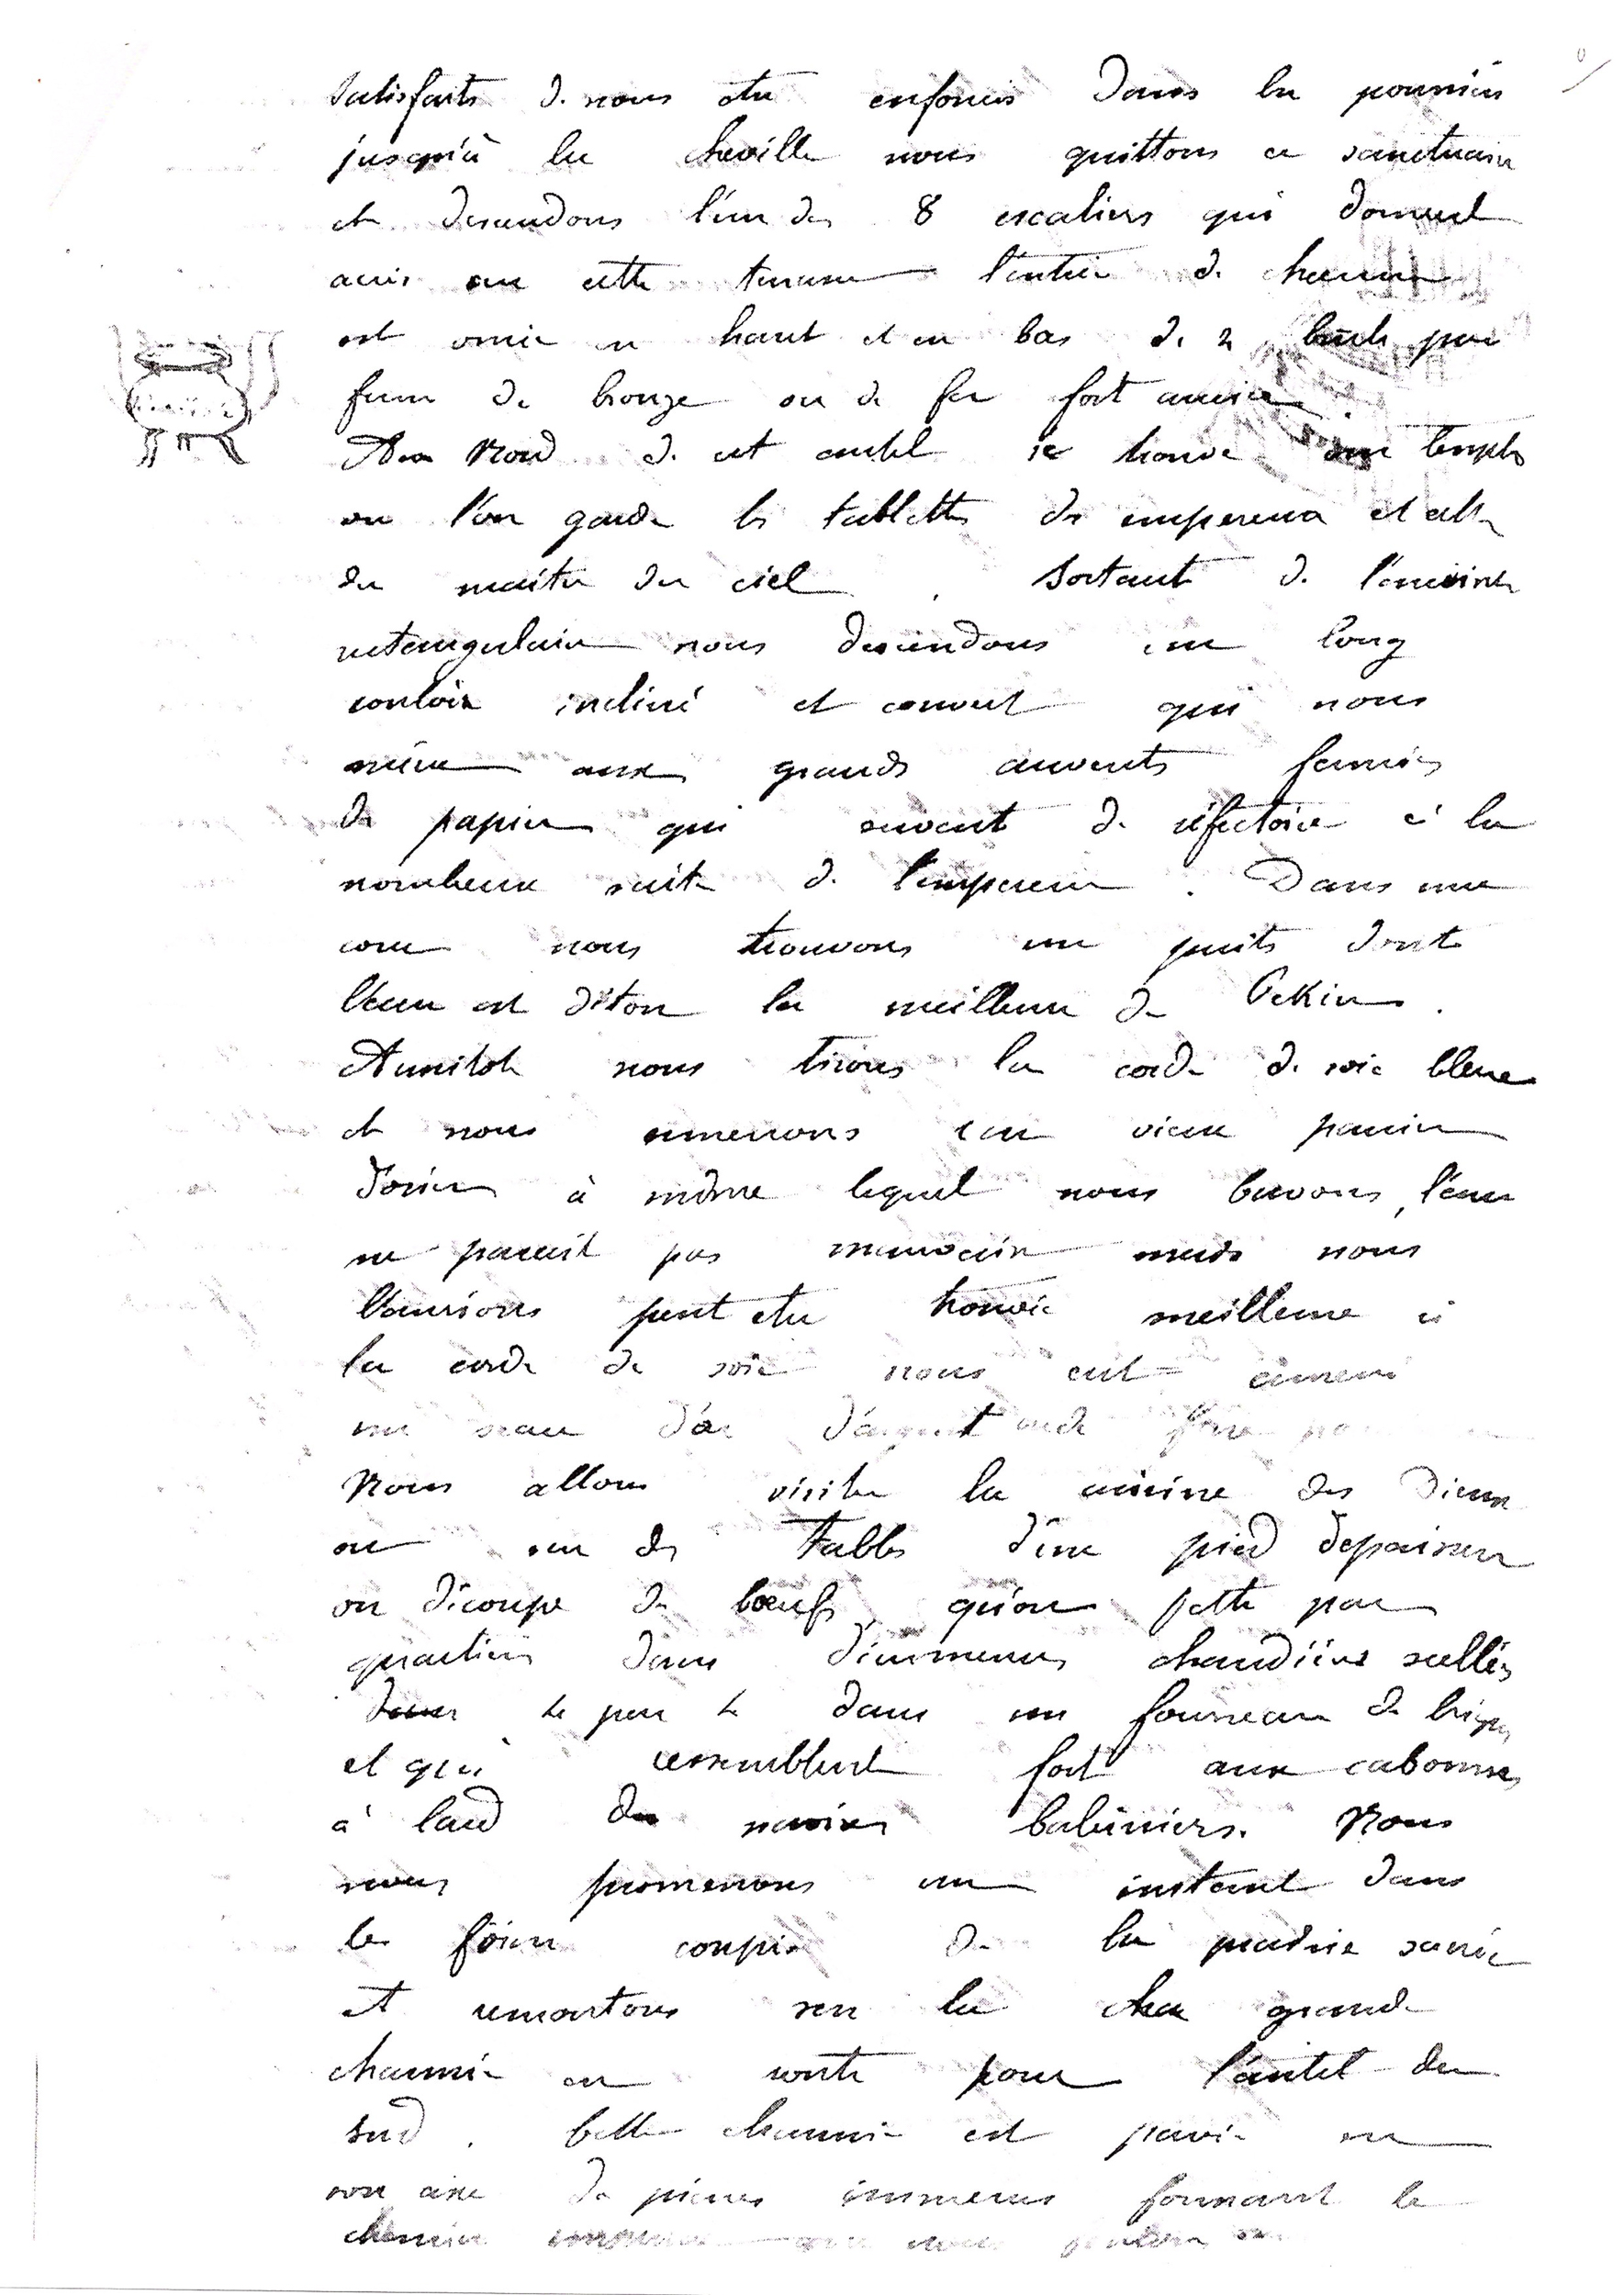 satisfaits de nous être enfouis dans la poussière
jusqu'à la cheville nous quittons ce sanctuaire
et descendons l'un des 8 escaliers qui donnent
accès sur cette terrasse l'entrée de chacun
est ornée en haut et en bas de 2 brule par
fum de bronze ou de fer fort anciens
Au Nord de cet autel se trouve un temple
ou l'on garde les tablettes des empereurs et celle
du maitre du ciel. Sortant de l'enceinte
rectangulaire nous descendons un long
couloir incliné et couvert qui nous
mène aux grands auvents fermés
de papier qui servent de réfectoire à la
nombreuse suite de l'empereur. Dans une
cour nous trouvons un puits dont
l'eau est dit on la meilleure de Pekin.
Aussitot nous tirons la corde de soie bleue
et nous amenons un vieux panier
d'osier à même lequel nous buvons, l'eau
ne parait pas mauvaise mais nous
l'aurions peut etre trouvée meilleure si
la corde de soie nous eut amené
un seau d'or d'argent
Nous allons visiter la cuisine des Dieux
ou sur des tables d'un pied d'epaisseur
on découpe des bœufs qu'on jette par
quartiers dans d'immenses chaudières scellées
dans un fourneau de briques
et qui ressemblent fort aux cabousses
à lard des navires baleiniers. Nous
nous promenons un instant dans
les foins coupés de la prairie sacrée
et remontons sur la grande
chaussée en route pour l'autel du
Sud. Cette chaussée est pavée en
son axe de pierres immenses formant le
chemin